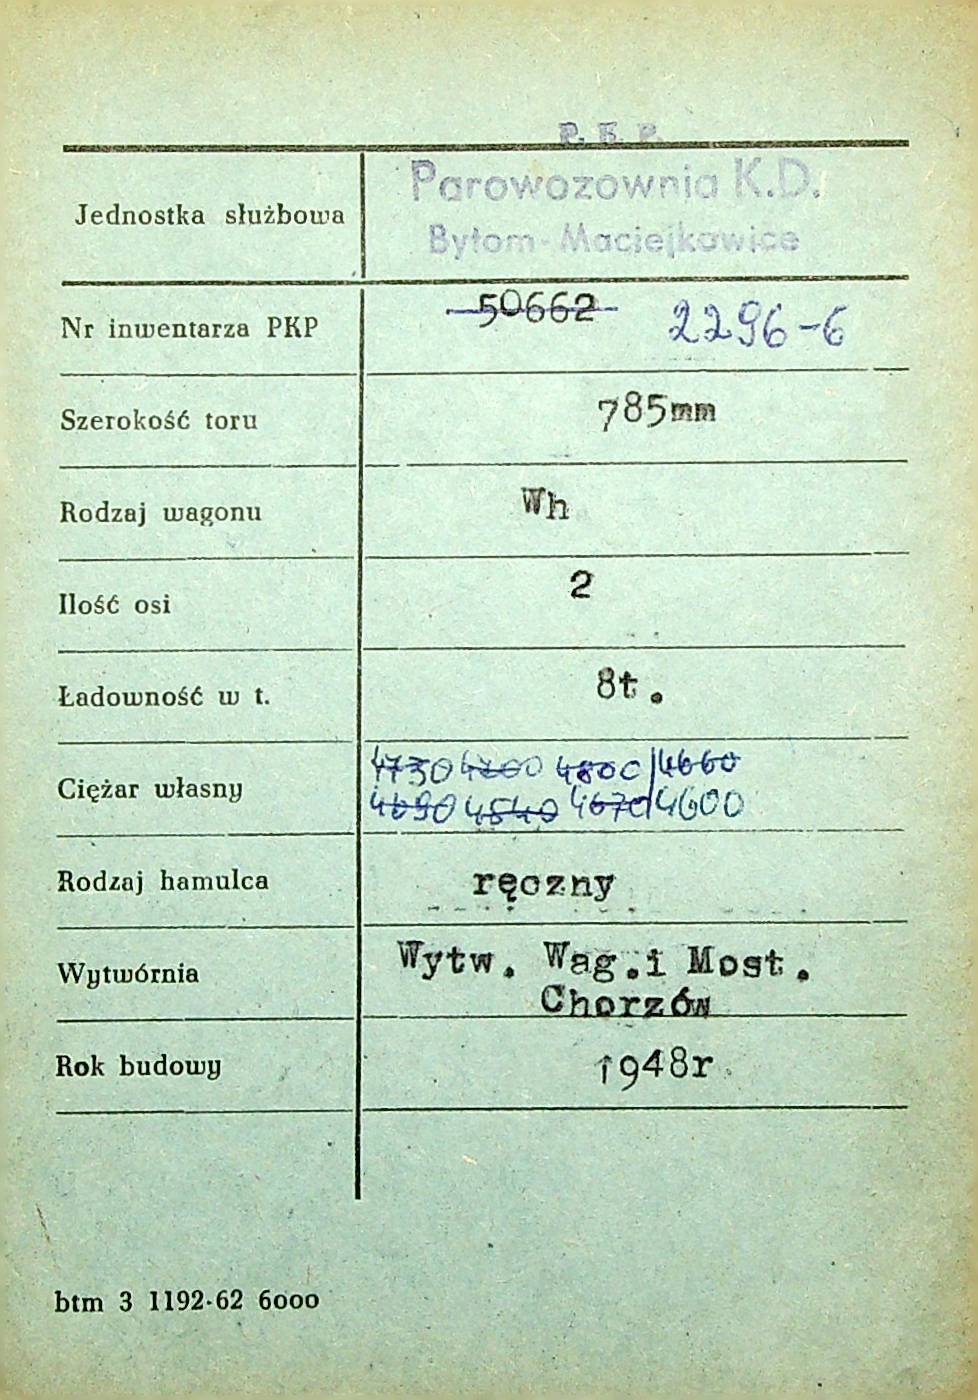 P. K. P.
Parowozownia K.D.
Jednostka służbowa
Bytom-Maciejkowice
50662
Nr inwentarza PKP 2296-6
Szerokość toru 785mm
Rodzaj wagonu Wh
Ilość osi 2
Ładowność w t. 8t.
4730 4700 4800 4660
Ciężar własny
4690 4540 4670 4600
Rodzaj hamulca ręczny
Wytwórnia Wytw. Wag.i Most.
Chorzów
Rok budowy 1948r
btm 3 1192-62 6000